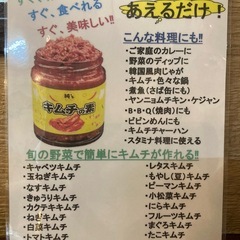 すぐ、食べれる
すぐ、美味しい!!
あえるだけ!
キムチの素
こんな料理にも!!
・ご家庭のカレーに
・野菜のディップに
・韓国風肉じゃが
・キムチ鍋・チゲ鍋
・煮魚(さば缶にも)
・ヤンニョムチキン・ケジャン
・B・B・Q(焼肉)にも
・ビビンめんにも
・キムチチャーハン
・スタミナ料理に使える
旬の野菜で簡単にキムチが作れる!!
・キャベツキムチ
・玉ねぎキムチ
・なすキムチ
・きゅうりキムチ
・カクテキキムチ
・ねぎキムチ
・白菜キムチ
・トマトキムチ
・レタスキムチ
・もやし(豆)キムチ
・ピーマンキムチ
・小松菜キムチ
・にらキムチ
・フルーツキムチ
・まぐろキムチ
・たこキムチ